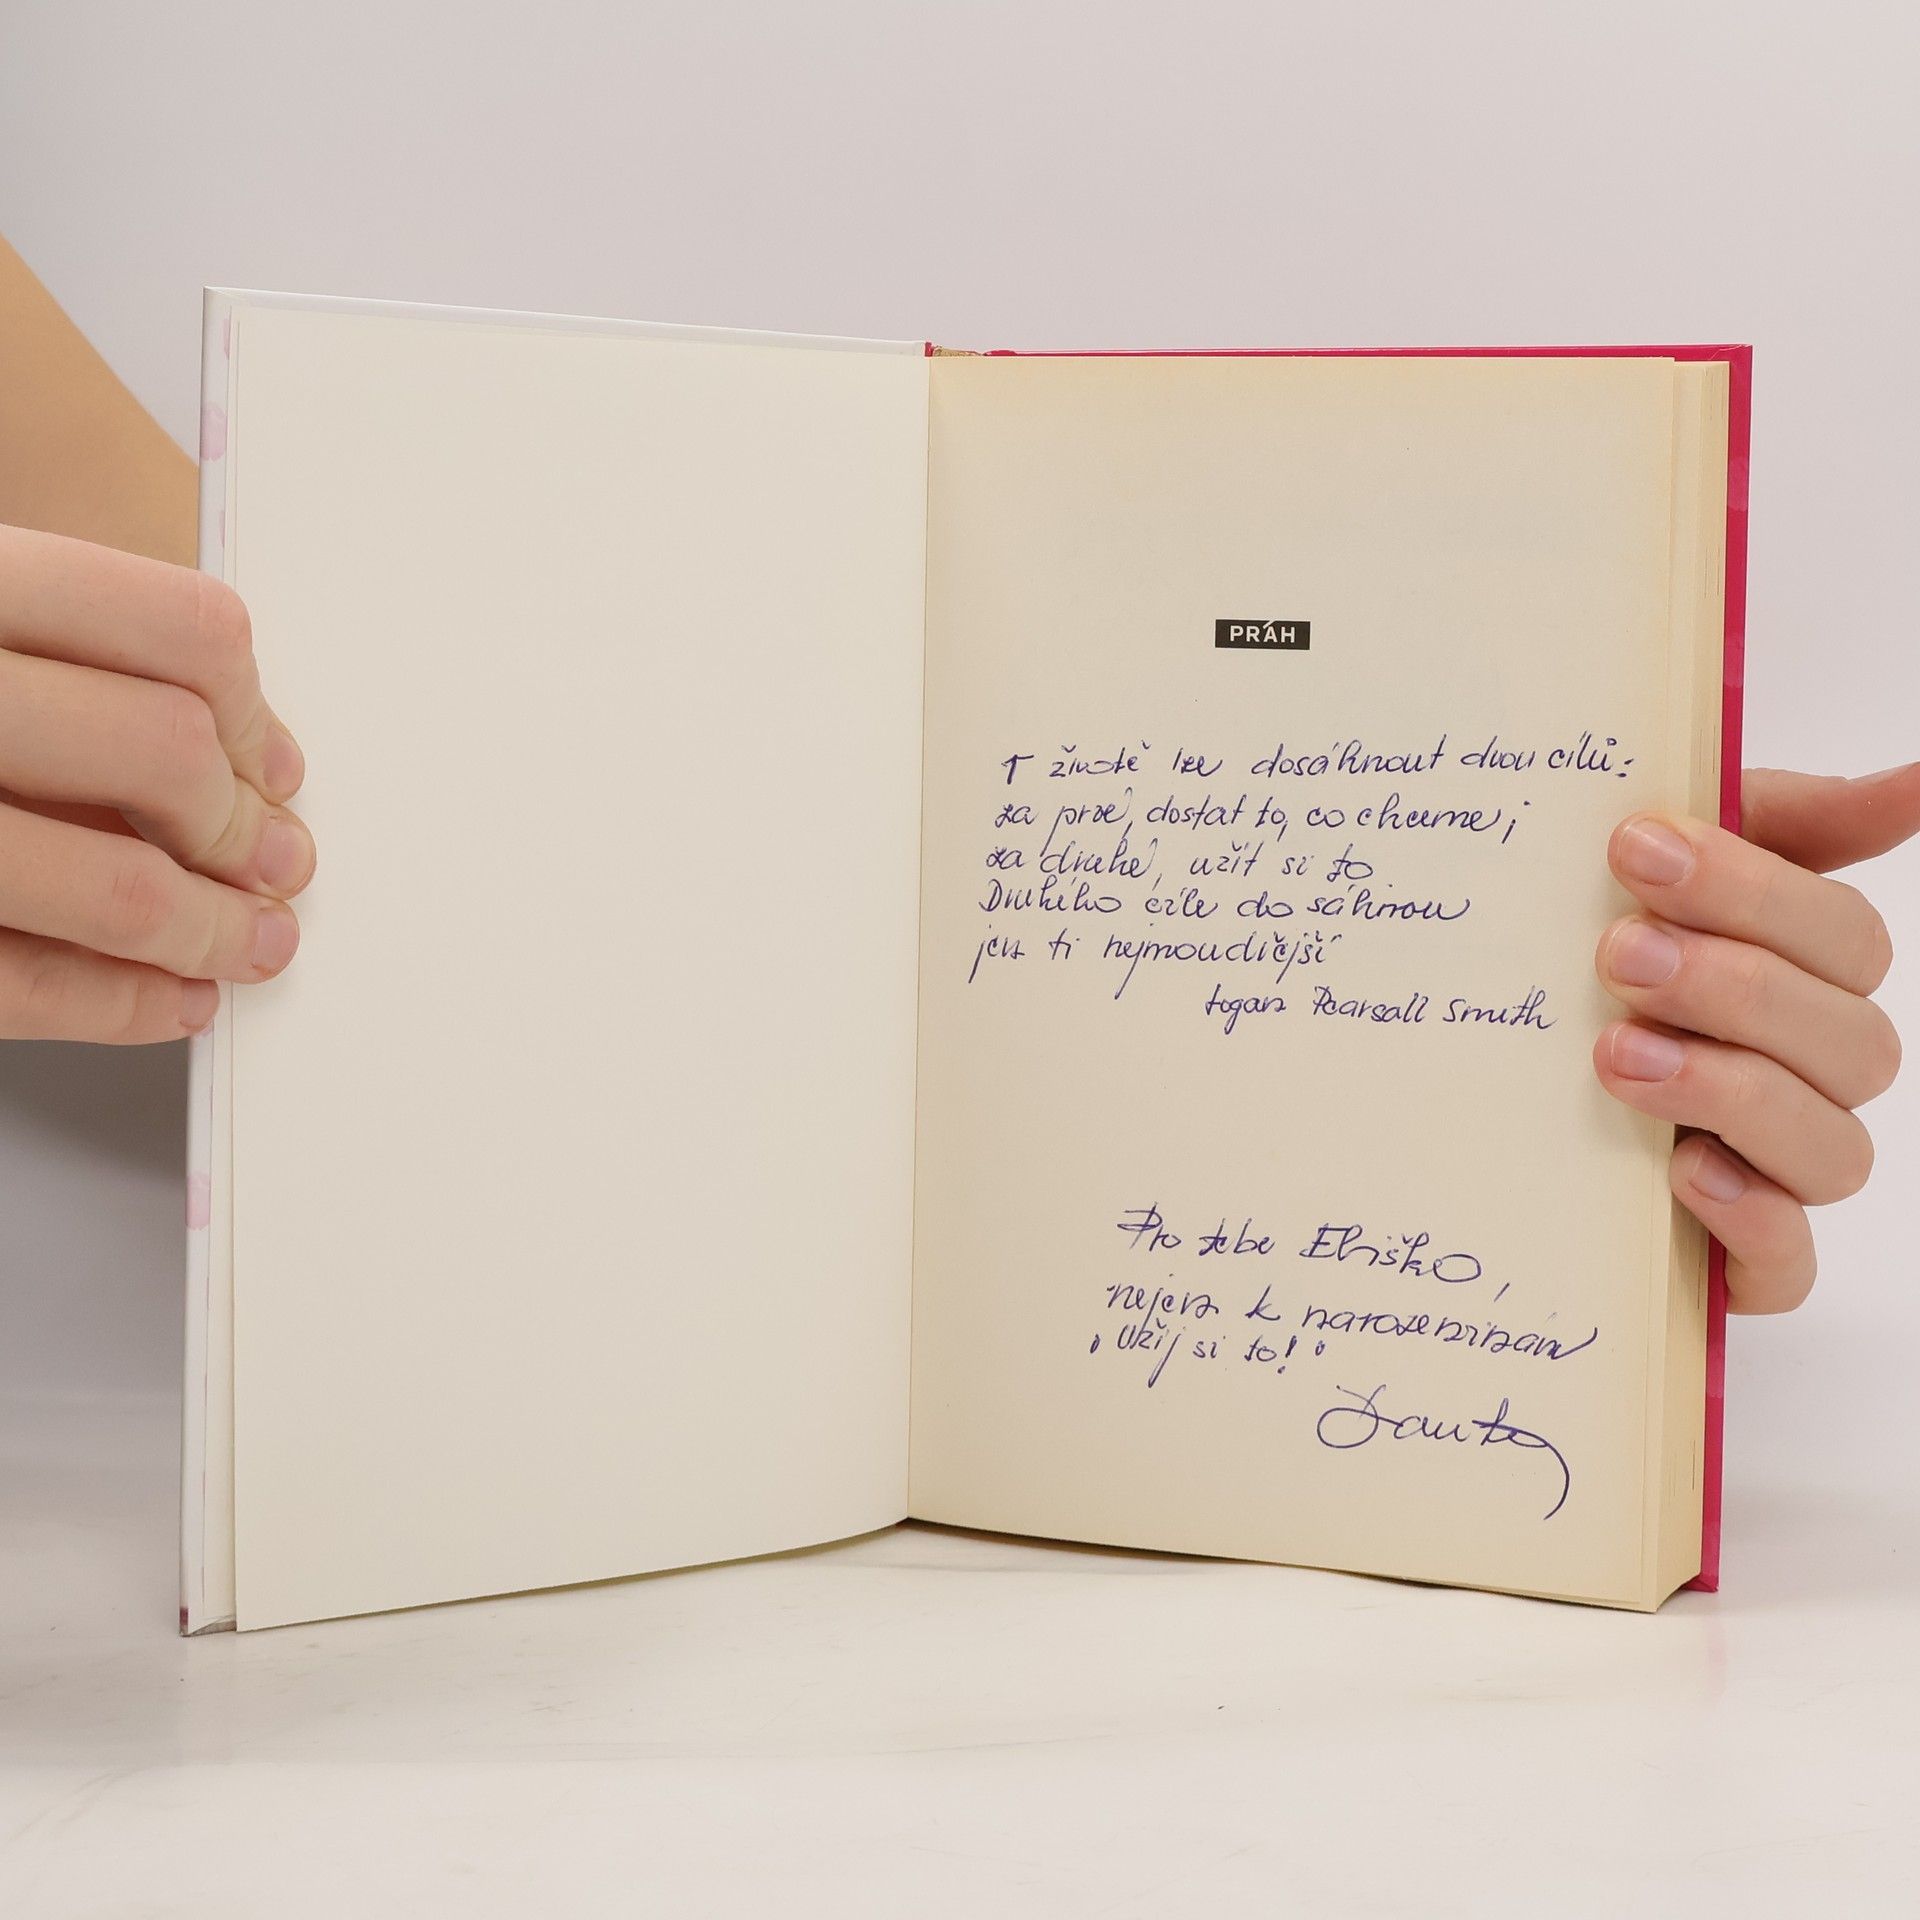 PRÁH
V životě lze dosáhnout dvou cílů:
za prvé, dostat to, co chceme;
za druhé, užít si to
Druhého cíle dosáhnou
jen ti nejmoudřejší
Logan Pearsall Smith
Pro tebe Eliško,
nejen k narozeninám
"Užij si to!"